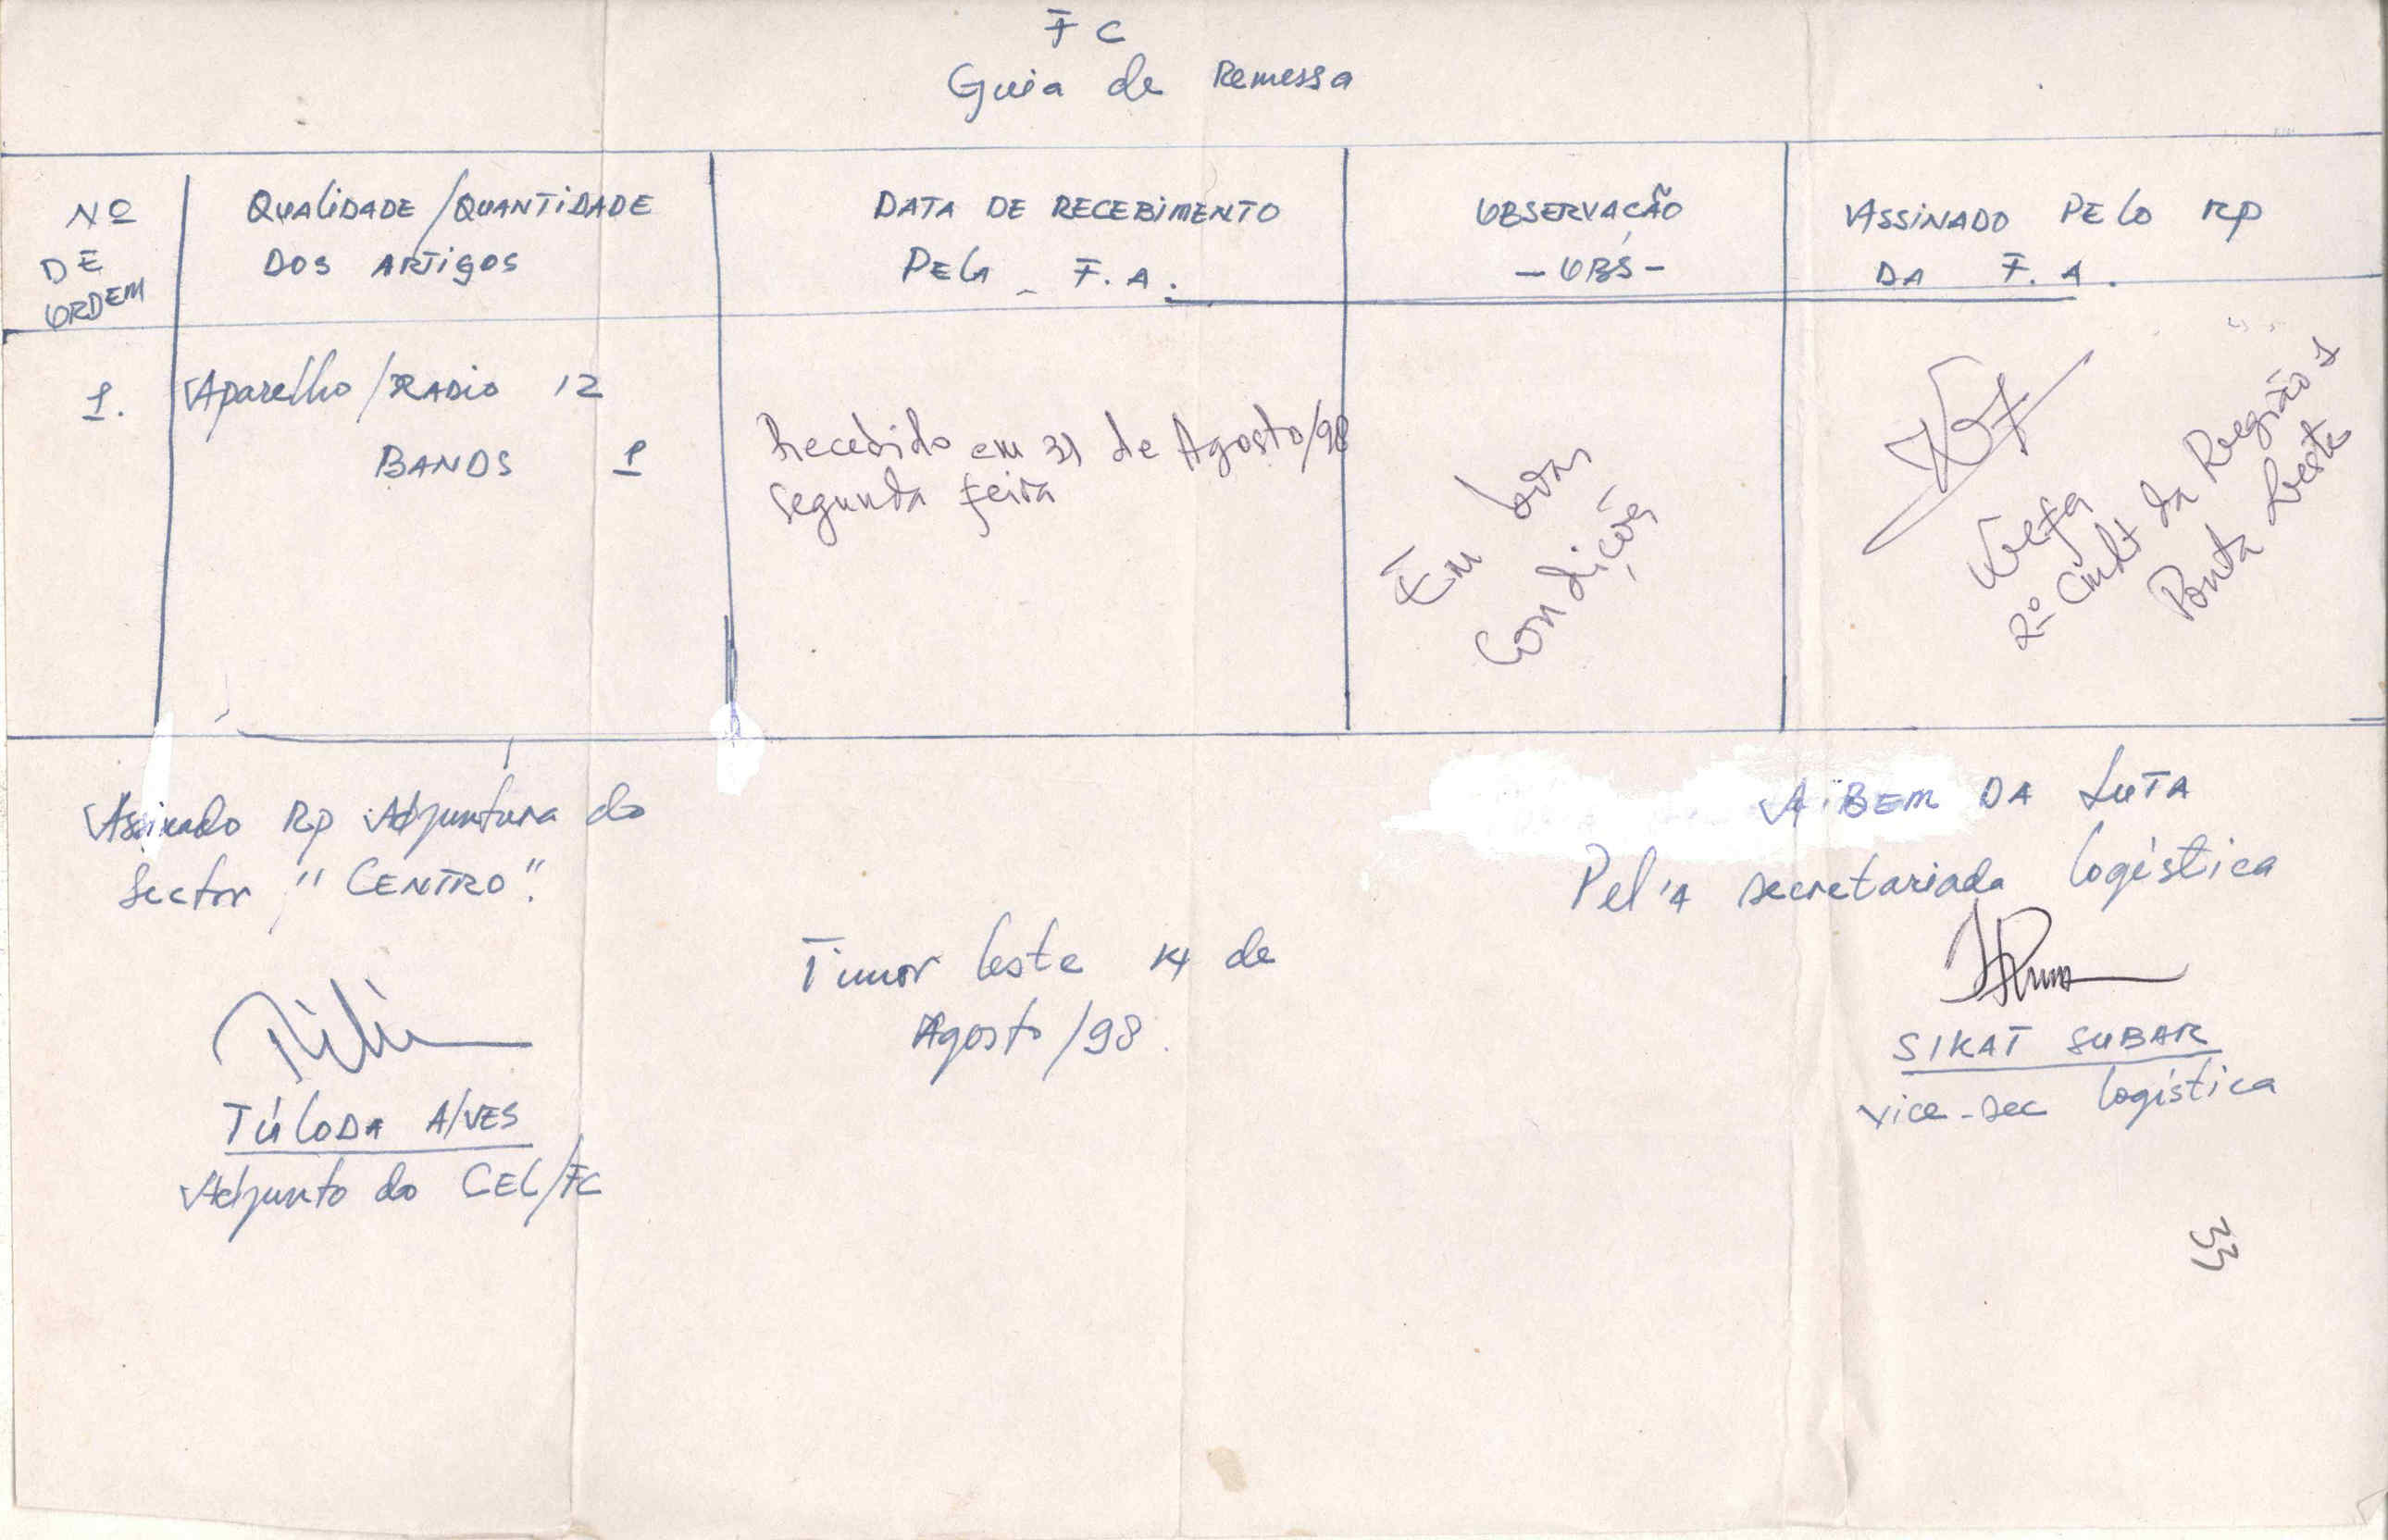 FC
Guia de Remessa
Nº
DE
ORDEM
QUALIDADE/QUANTIDADE
DOS ARTIGOS
DATA DE RECEBIMENTO
PELA F.A.
OBSERVAÇÃO
- OBS -
ASSINADO PELO RP
DA F.A.
1.
Aparelho/RADIO 12
BANDS 1
Recebido em 31 de Agosto/98
segunda feira
Em boas
condições
2º Cmdt da Região 1
Ponta Leste
Assinado Rp Adjuntura do
Sector "CENTRO".
TÚLODA ALVES
Adjunto do CEL/FC
Timor Leste 14 de
Agosto/98.
A BEM DA LUTA
Pel'A secretariada logística
SIKAT SUBAR
vice-sec logística